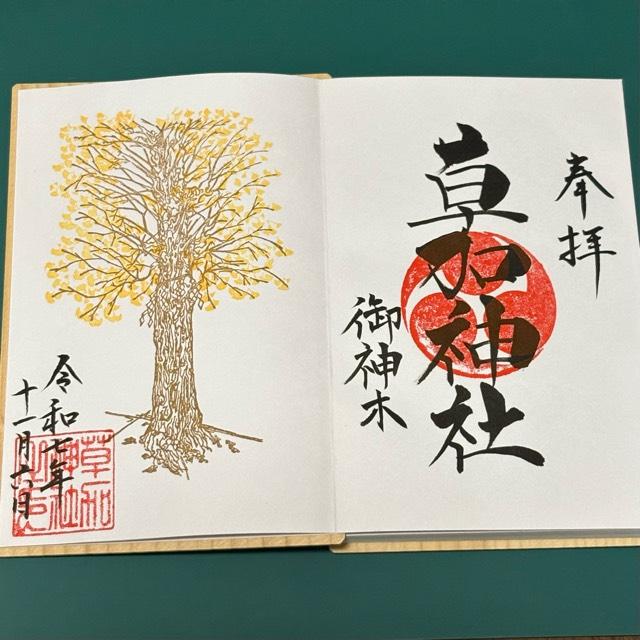 奉拝
草加神社
御神木
令和七年
十一月六日
草加
神社